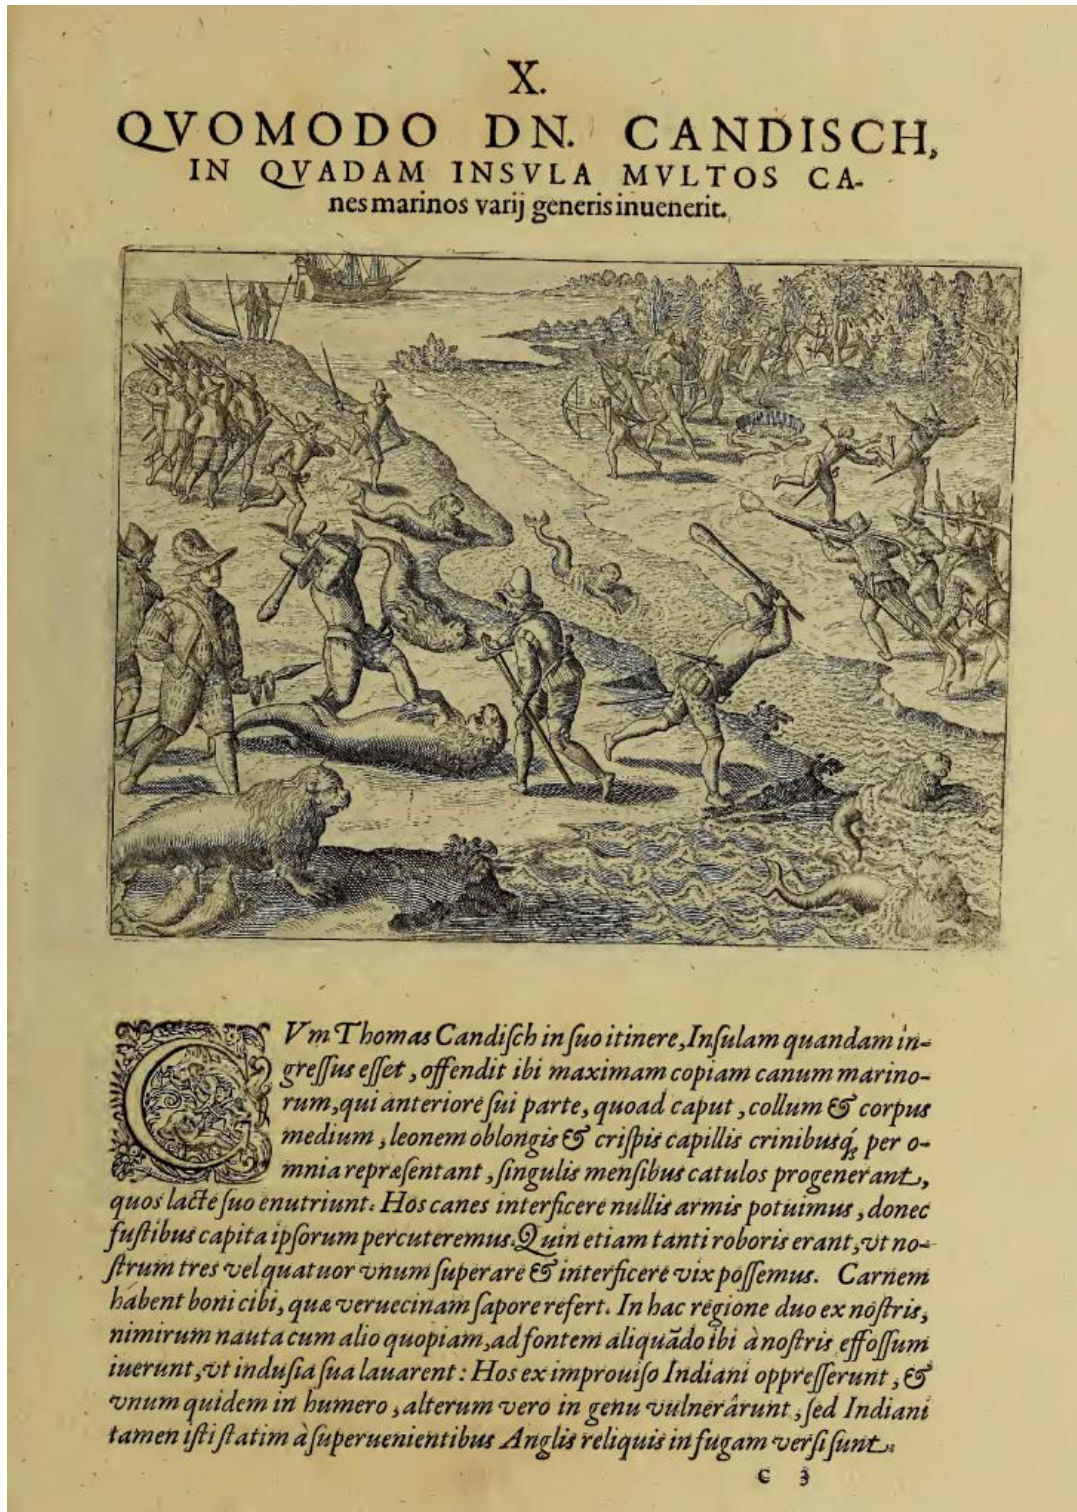 X.
QVOMODO DN. CANDISCH,
IN QVADAM INSVLA MVLTOS CA-
nes marinos varij generis inuenerit.
CVm Thomas Candiſch in ſuo itinere, Inſulam quandam in-
greſſus eſſet, offendit ibi maximam copiam canum marino-
rum, qui anteriore ſui parte, quoad caput, collum & corpus
medium, leonem oblongis & criſpis capillis crinibusq́; per o-
mnia repræſentant, ſingulis menſibus catulos progenerant,
quos lacte ſuo enutriunt. Hos canes interficere nullis armis potuimus, donec
fuſtibus capita ipſorum percuteremus. Quin etiam tanti roboris erant, vt no-
ſtrum tres vel quatuor vnum ſuperare & interficere vix poſſemus. Carnem
habent boni cibi, quæ veruecinam ſapore refert. In hac regione duo ex noſtris,
nimirum nauta cum alio quopiam, ad fontem aliquãdo ibi à noſtris effoſſum
iuerunt, vt induſia ſua lauarent: Hos ex improuiſo Indiani oppreſſerunt, &
vnum quidem in humero, alterum vero in genu vulnerârunt, ſed Indiani
tamen iſti ſtatim à ſuperuenientibus Anglis reliquis in fugam verſi ſunt.
C 3